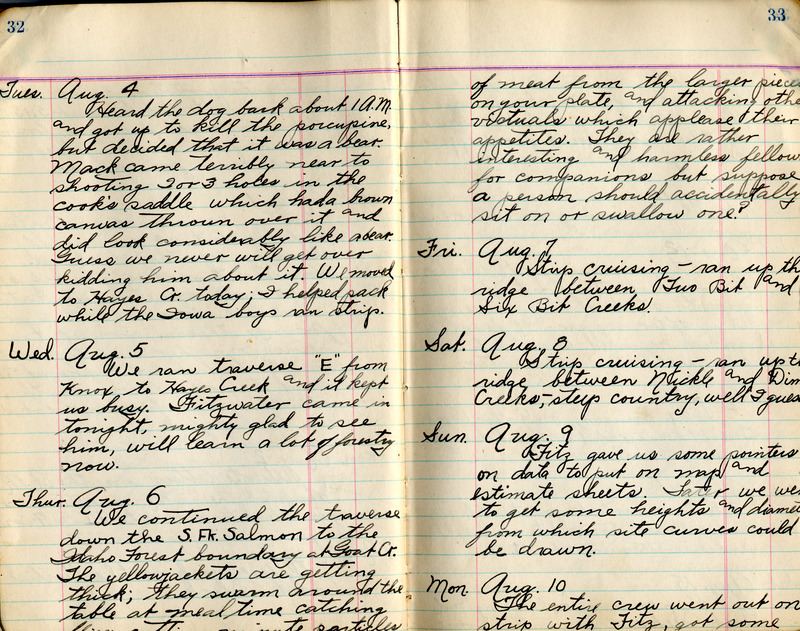 32
Tues. Aug. 4
Heard the dog bark about 1 A.M.
and got up to kill the porcupine,
but decided that it was a bear.
Mack came terribly near to
shooting 2 or 3 holes in the
cook's saddle which had a brown
canvas thrown over it and
did look considerably like a bear.
Guess we never will get over
kidding him about it. We moved
to Hayes Cr. today; I helped pack
while the Iowa boys ran strip.
Wed. Aug. 5
We ran traverse "E" from
Knox to Hayes Creek and it kept
us busy. Fitzwater came in
tonight, mighty glad to see
him, will learn a lot of forestry
now.
Thur. Aug. 6
We continued the traverse
down the S. Fk. Salmon to the
Idaho Forest boundary at Goat Cr.
The yellowjackets are getting
thick; they swarm around the
table at mealtime catching
particles
33
of meat from the larger pieces
on your plate, and attacking othe
victuals which applease their
appetites. They are rather
interesting and harmless fellow
for companions but suppose
a person should accidentally
sit on or swallow one?
Fri. Aug. 7
Strip cruising - ran up th
ridge between Two Bit and
Six Bit Creeks.
Sat. Aug. 8
Strip cruising - ran up t
ridge between Nickle and Dim
Creeks, steep country, well I gues
Sun. Aug. 9
Fitz gave us some pointers
on data to put on map and
estimate sheets. Later we wen
to get some heights and diame
from which site curves could
be drawn.
Mon. Aug. 10
The entire crew went out on
strip with Fitz, got some